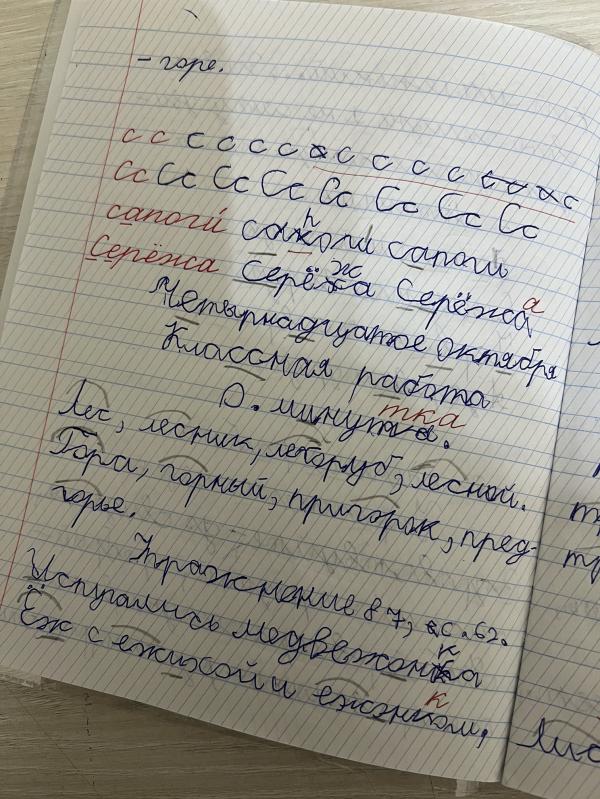 - горе.
с с с с с с с с с с с с с с
Сс Сс Сс Сс Сс Сс Сс Сс
сапоги сапоги сапоги
Серёжа Серёжа Серёжа
Четырнадцатое октября
Классная работа
О. минутка.
Лес, лесник, лесоруб, лесной.
Гора, горный, пригорок, пред-
горье.
Упражнение 87, с. 62.
Испугались медвежонка
Ёж с ежихой и ежонком,